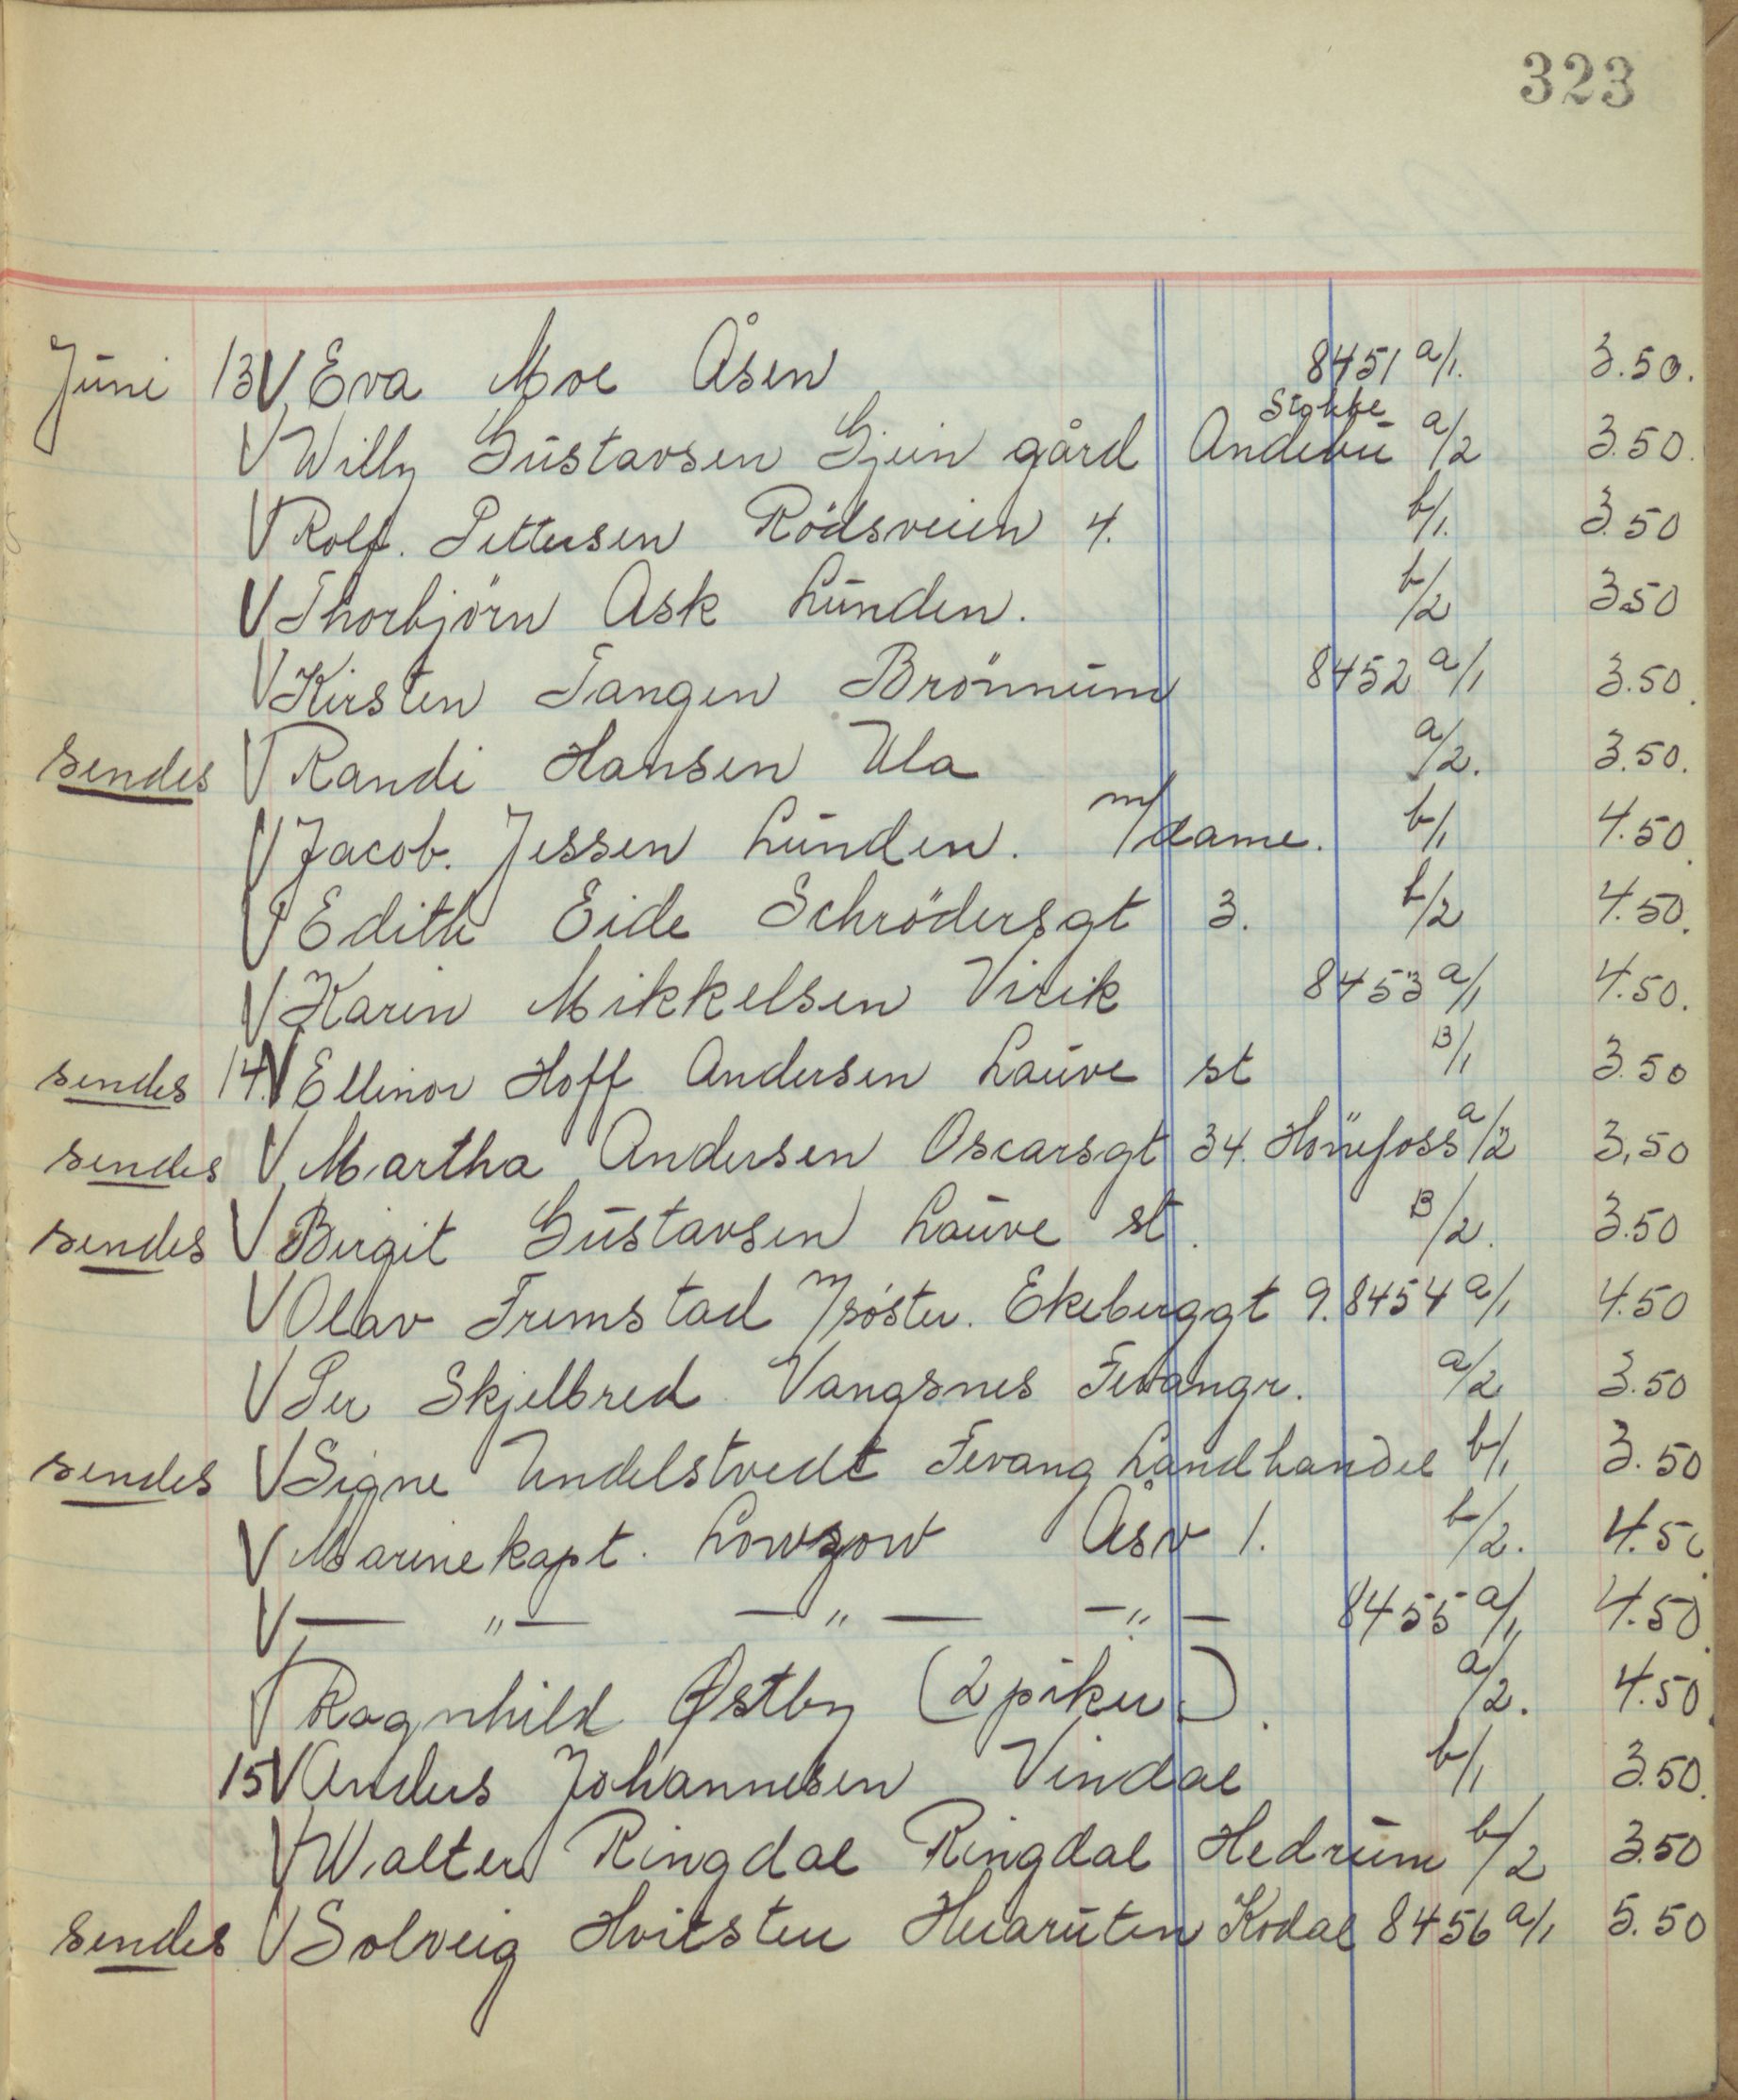 323
Juni 13 V Eva Moe Åsen 8451 a/1. 3.50.
V Willy Gustavsen Gjein gård Stokke Andebu a/2 3.50.
V Rolf. Pettersen Rödsveien 4. b/1. 3.50
V Thorbjörn Ask Lunden. b/2 3.50
V Kirsten Tangen Brönnum 8452 a/1 3.50.
sendes V Randi Hansen Ula a/2. 3.50.
V Jacob. Jessen Lunden. m/dame. b/1 4.50.
V Edith Eide Schrödersgt 3. b/2 4.50.
V Karin Mikkelsen Virik 8453 a/1 4.50.
sendes 14. V Ellinor Hoff Andersen Lauve st B/1 3.50
sendes V Martha Andersen Oscarsgt 34. Hönefoss a/2 3,50
sendes V Birgit Gustavsen Lauve st. B/2. 3.50
V Olav Fremstad m/søster. Ekeberggt 9. 8454 a/1 4.50
V Per Skjelbred Vangsnes Fevangr. a/2 3.50
sendes V Signe Undelstvedt Fevang Landhandel b/1 3.50
V Marinekapt. Lowzow Åsv 1. b/2. 4.50.
V — " — — " — — " — 8455 a/1 4.50.
V Ragnhild Østby (2 piker.). a/2. 4.50.
15 V Anders Johannesen Vindal b/1 3.50.
V Walter Ringdal Ringdal Hedrum b/2 3.50
sendes V Solveig Hvitsten Heiaruten Kodal 8456 a/1 5.50